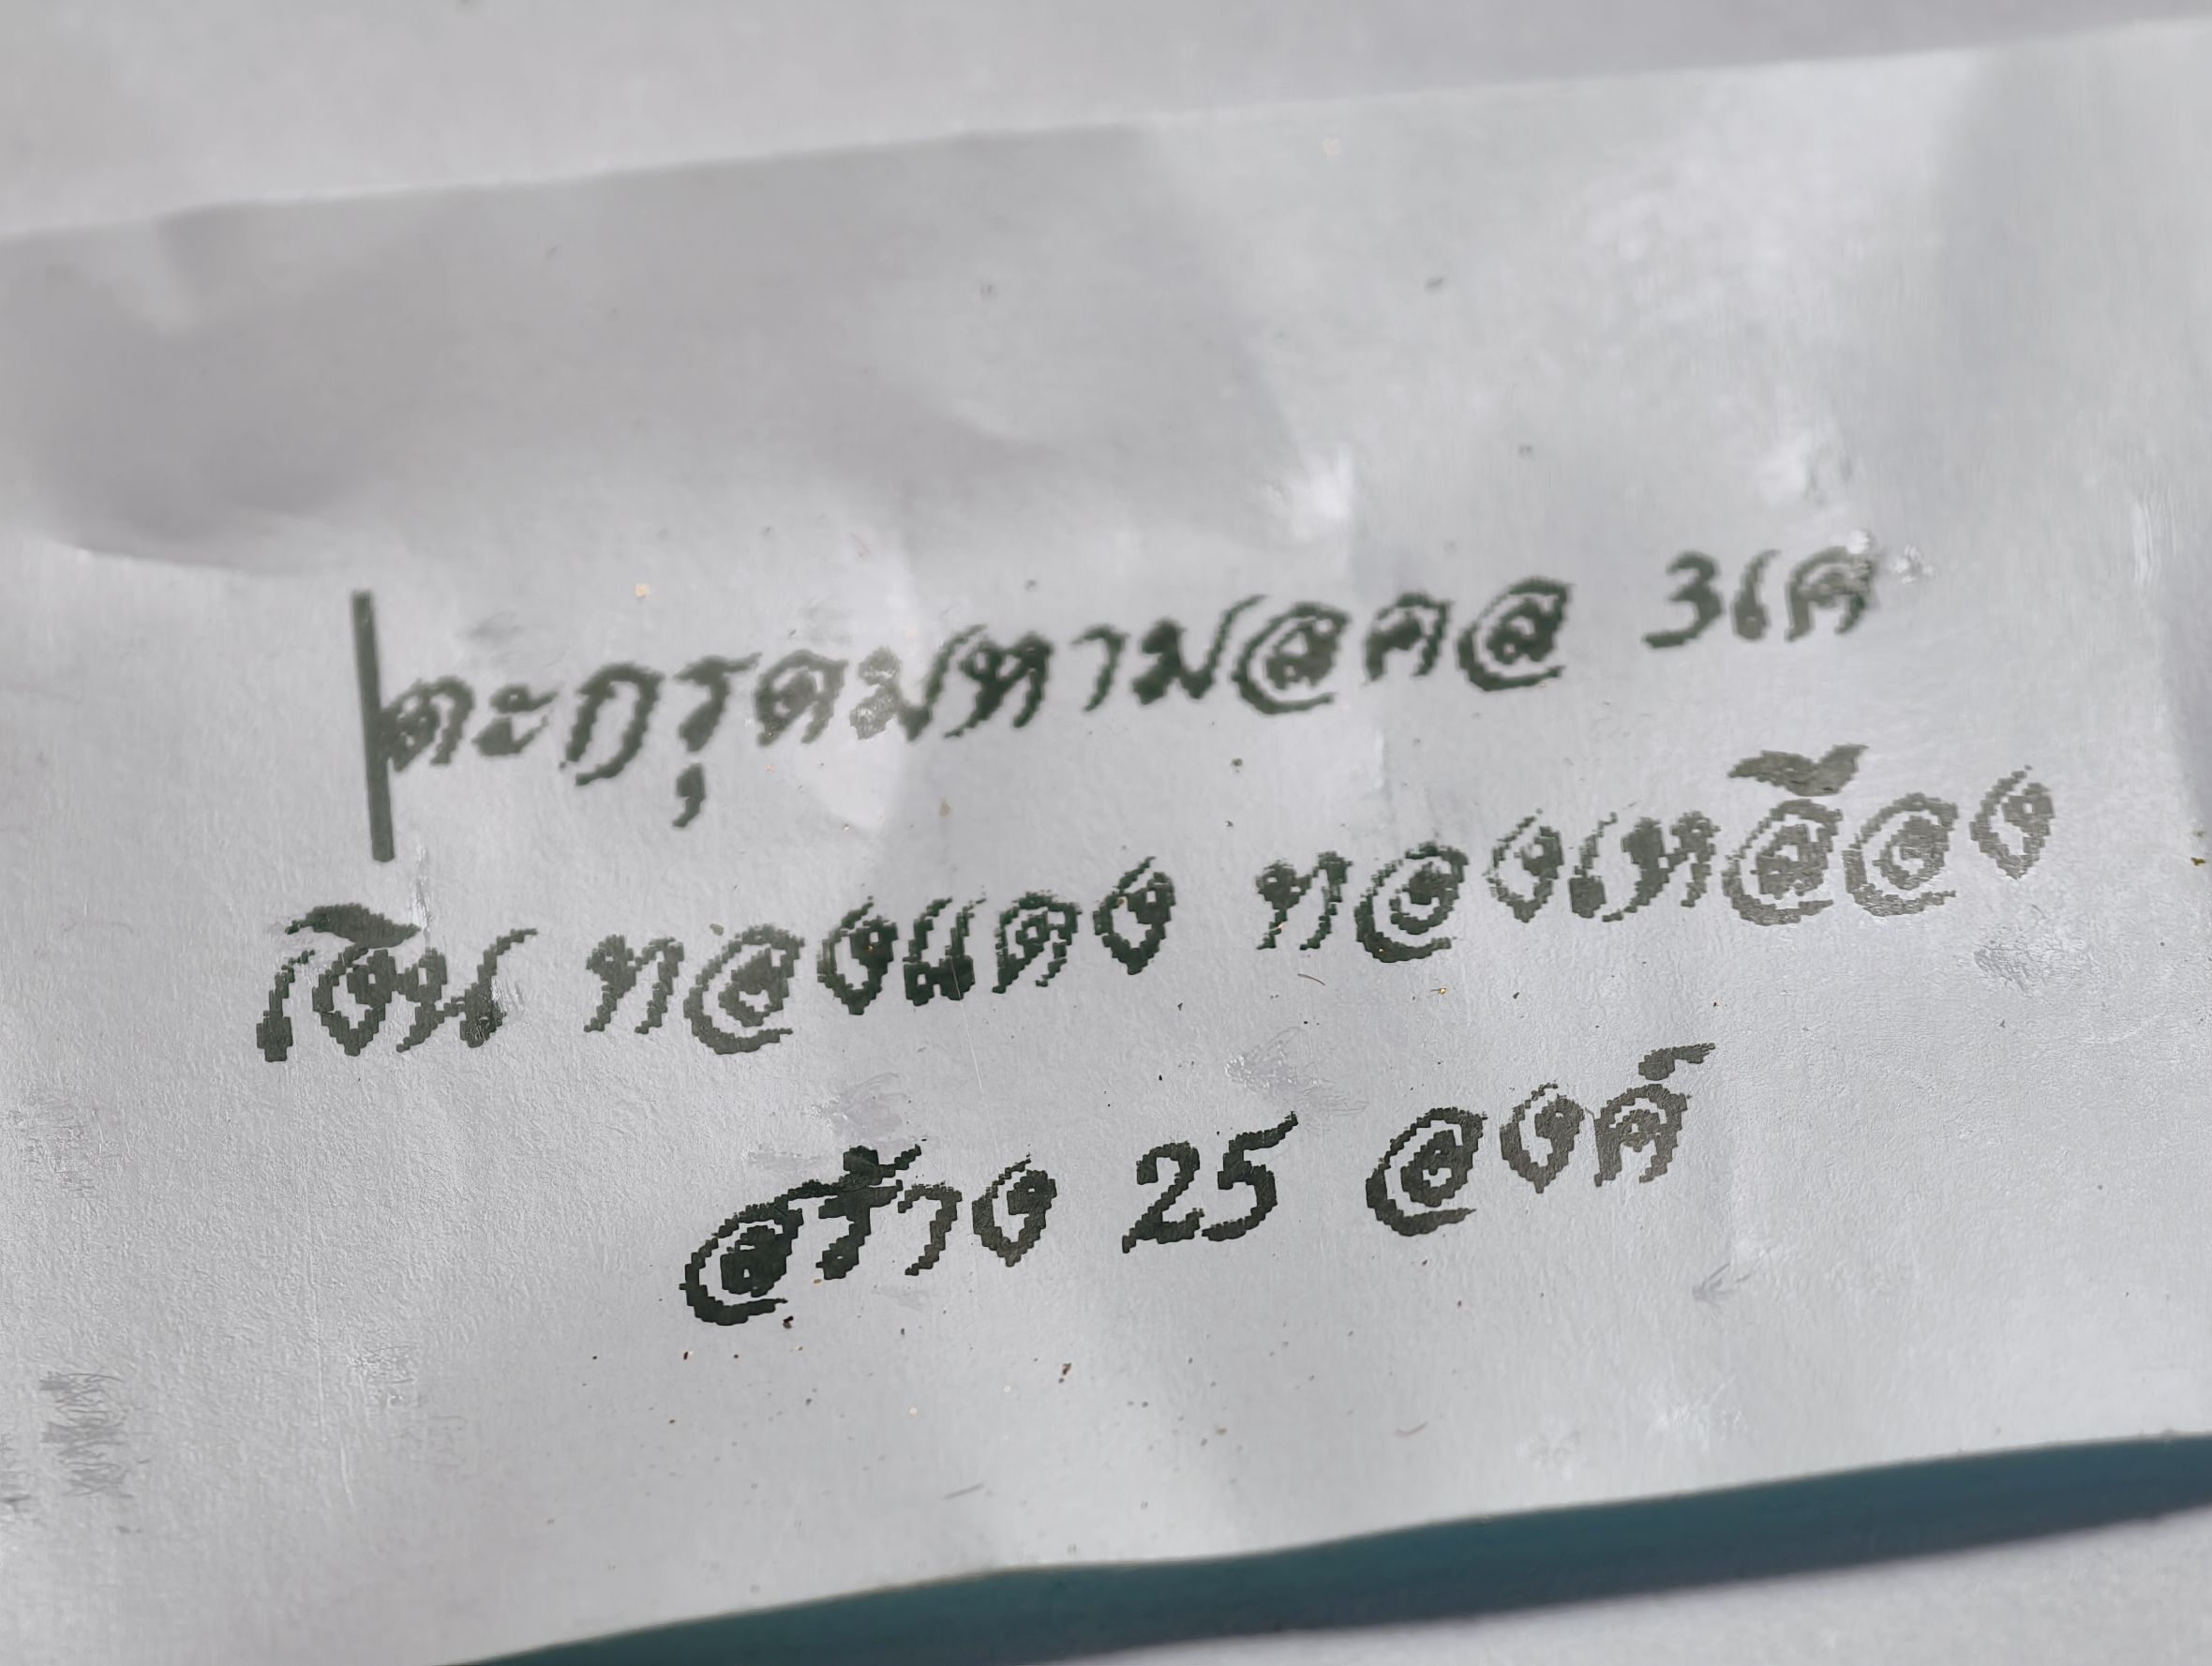 ตะกรุดมหามอคล 3เค
เงิน ทองแดง ทองเหลือง
สร้าง 25 องค์